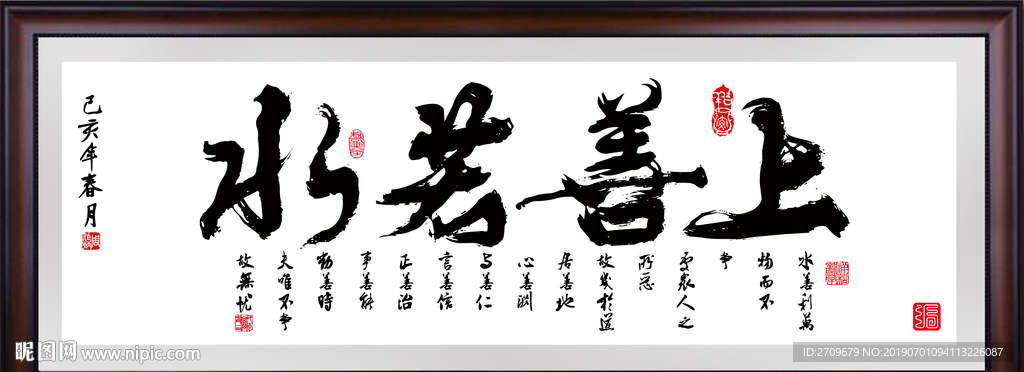 上善若水
水善利萬
物而不
争
處衆人之
所惡
故幾於道
居善地
心善淵
与善仁
言善信
正善治
事善能
動善時
夫唯不争
故無忧
己亥年春月
昵图网 www.nipic.com
ID:2709679 NO:20190701094113226087